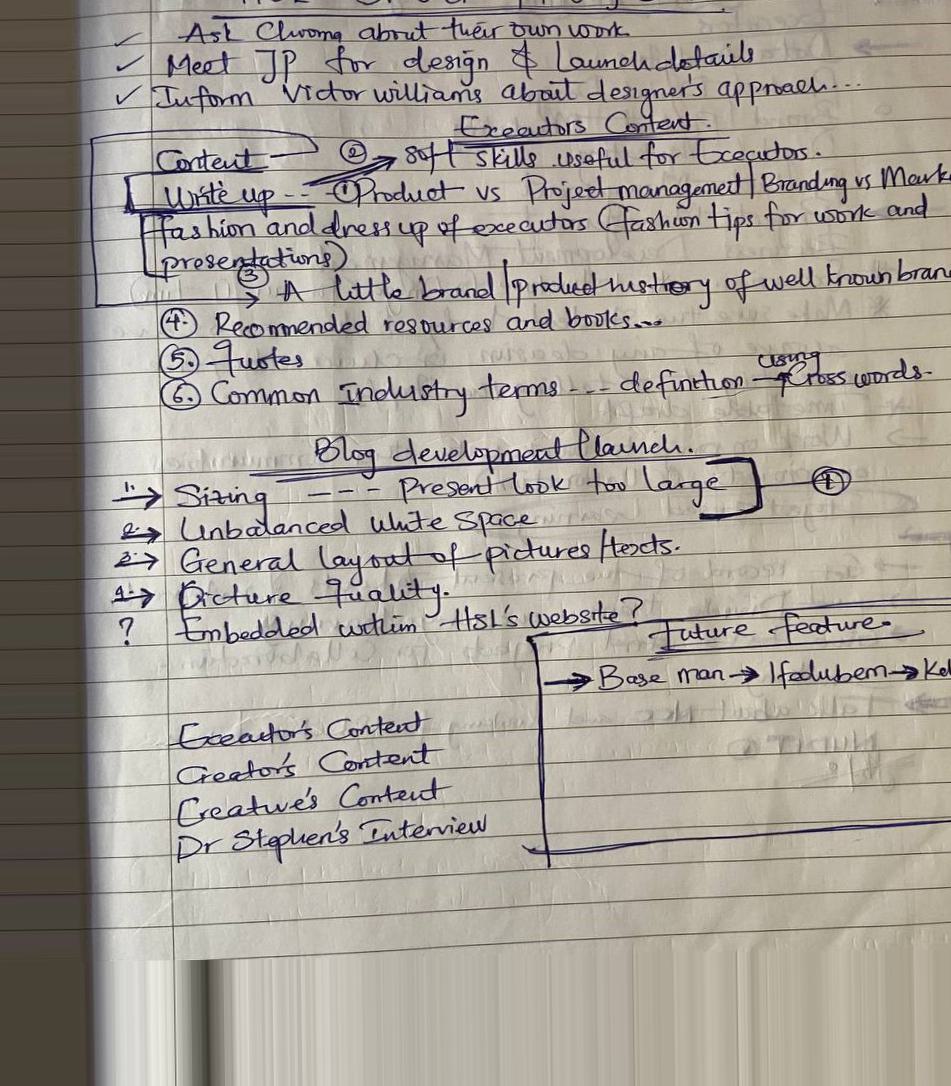 ✓ Ask Chioma about their own work
✓ Meet JP for design & Launch details
✓ Inform Victor williams about designer's approach...
Executors Content.
Content ② → soft skills useful for Executors.
Write up -- ① Product vs Project management | Branding vs Mark
fashion and dress up of executors (fashion tips for work and
presentations)
③ → A little brand/product history of well known bran
④. Recommended resources and books...
⑤. Quotes
⑥. Common Industry terms --- definition → using Cross words.
Blog development / launch.
1. → Sizing --- Present look too large ] ①
2. → Unbalanced white space
3. → General layout of pictures/texts.
4. → Picture Quality.
? Embedded within HSL's website?
Future feature.
→ Base man → Ifedubem → Kel
Executor's Content
Creator's Content
Creative's Content
Dr Stephen's Interview